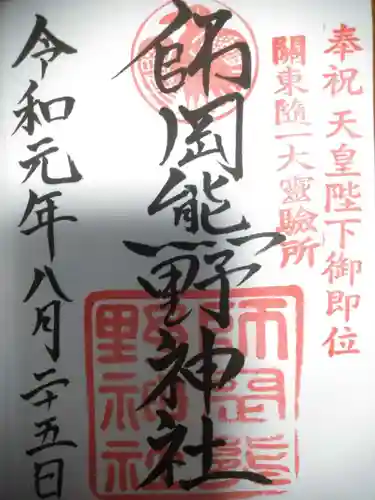 奉祝 天皇陛下御即位
關東隨一大靈驗所
師岡熊野神社
師岡熊野神社
令和元年八月二十五日